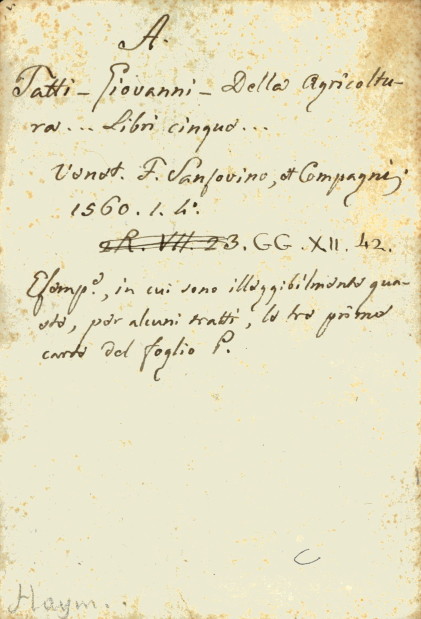 A.
Tatti - Giovanni - Della Agricoltu-
ra... Libri cinque...
Venet. F. Sansovino, et Compagni,
1560. 1. 4°.
R. VII. 23. GG. XII. 42.
Esemp.e, in cui sono illeggibilmente gua-
ste, per alcuni tratti, le tre prime
carte del foglio P.
Haym.